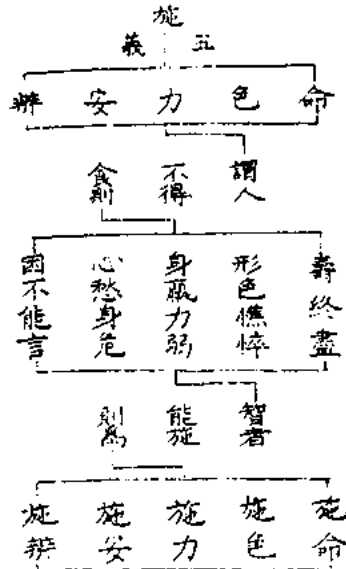 施
五義
命
色
力
安
辨
謂人
不得
食則
壽終盡
形色憔悴
身羸力弱
心愁身危
困不能言
智者
能施
則為
施命
施色
施力
施安
施辨